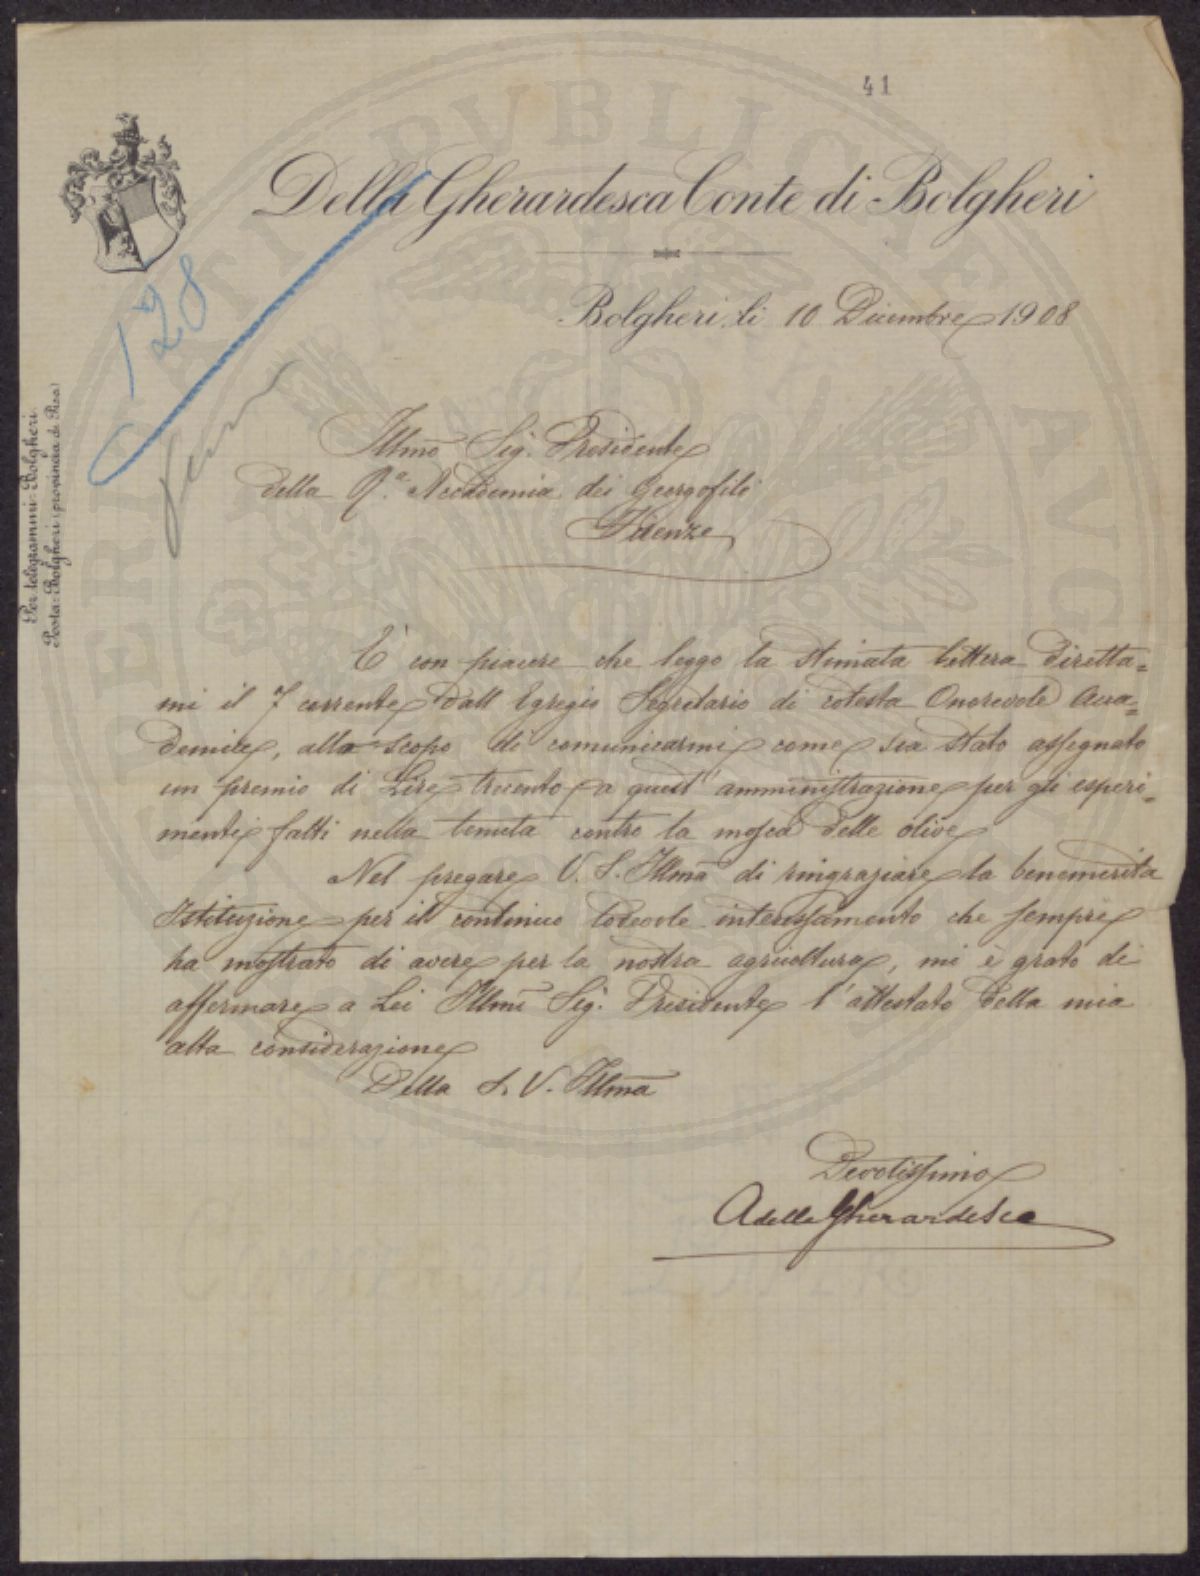 41
Della Gherardesca Conte di Bolgheri
Bolgheri, li 10 Dicembre 1908
128
Per telegrammi: Bolgheri.
Posta: Bolgheri (provincia di Pisa)
Illmo Sig. Presidente
della R.a Accademia dei Georgofili
Firenze
È con piacere che leggo la stimata lettera diretta=
mi il 7 corrente dall Egregio Segretario di cotesta Onorevole Acca=
demia, allo scopo di comunicarmi come sia stato assegnato
un premio di Lire trecento a quest'amministrazione per gli esperi=
menti fatti nella tenuta contro la mosca delle olive
Nel pregare V. S. Illma di ringraziare la benemerita
Istituzione per il continuo lodevole interessamento che sempre
ha mostrato di avere per la nostra agricoltura, mi è grato di
affermare a Lei Illmo Sig. Presidente l'attestato della mia
alta considerazione
Della S. V. Illma
Devotissimo
A della Gherardesca